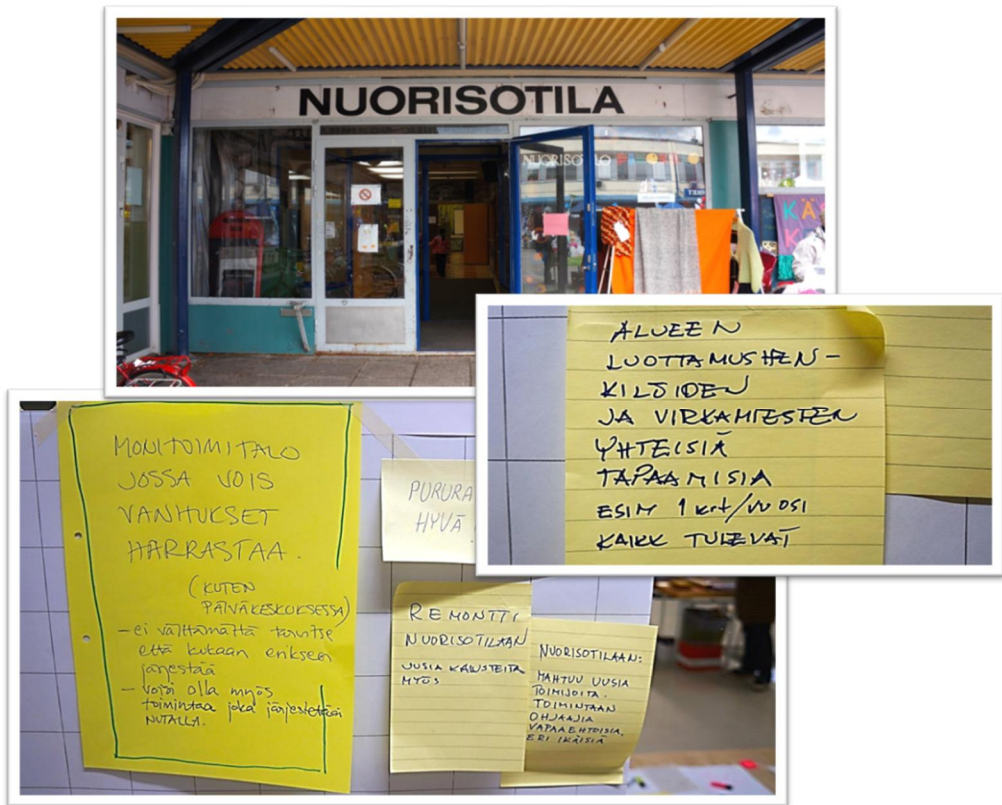 NUORISOTILA
NUORISOTILO
KÄS
ALUEEN
LUOTTAMUSHEN-
KILÖIDEN
JA VIRKAMIESTEN
YHTEISIÄ
TAPAAMISIA
ESIM 1 krt/VUOSI
KAIKK TULEVAT
MONITOIMITALO
JOSSA VOIS
VANHUKSET
HARRASTAA.
(KUTEN
PÄIVÄKESKUKSESSA)
- ei välttämättä tarvitse
että kukaan erikseen
järjestää
- voisi olla myös
toimintaa joka järjestetään
NUTALLA.
PURURA
HYVÄ
REMONTTI
NUORISOTILAAN
UUSIA KALUSTEITA
MYÖS
NUORISOTILAAN:
MAHTUU UUSIA
TOIMIJOITA.
TOIMINTAAN
OHJAAJIA
VAPAAEHTOISIA.
ERI IKÄISIÄ